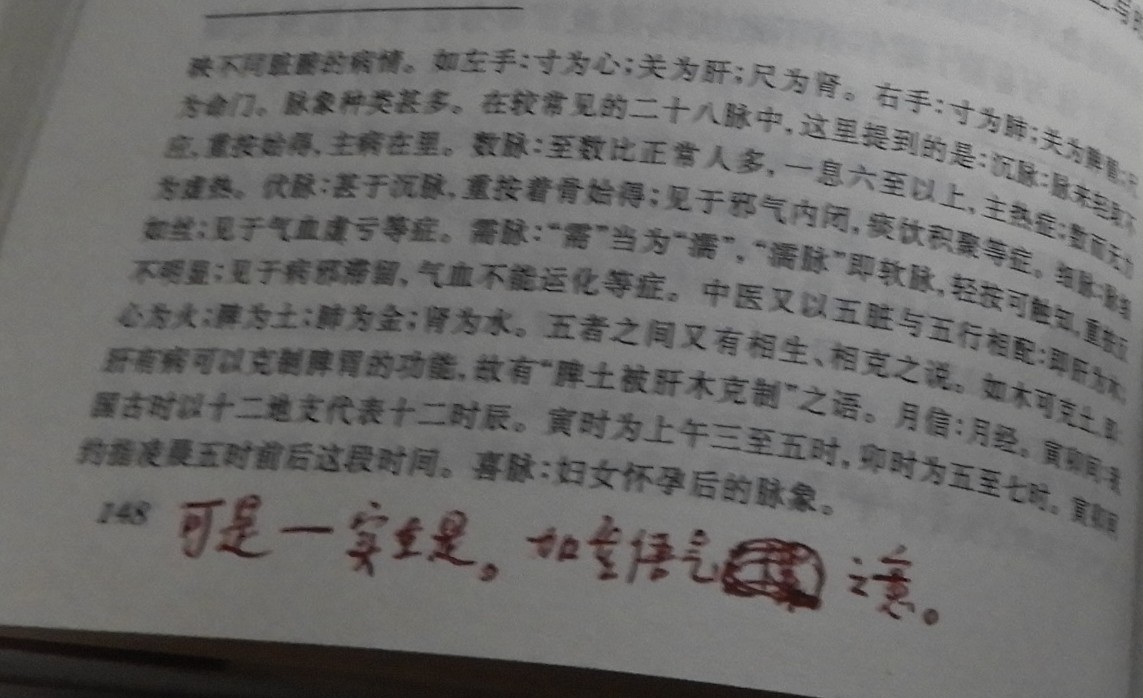 映不同脏腑的病情。如左手：寸为心；关为肝；尺为肾。右手：寸为肺；关为脾胃；尺
为命门。脉象种类甚多。在较常见的二十八脉中，这里提到的是：沉脉：脉来轻取不
应，重按始得，主病在里。数脉：至数比正常人多，一息六至以上，主热症；数而无力
为虚热。伏脉：甚于沉脉，重按着骨始得；见于邪气内闭，痰饮积聚等症。细脉：脉细
如丝；见于气血虚亏等症。需脉：“需”当为“濡”，“濡脉”即软脉，轻按可触知，重按反
不明显；见于病邪滞留，气血不能运化等症。中医又以五脏与五行相配：即肝为木；
心为火；脾为土；肺为金；肾为水。五者之间又有相生、相克之说。如木可克土，即
肝有病可以克制脾胃的功能，故有“脾土被肝木克制”之语。月信：月经。寅卯间：我
国古时以十二地支代表十二时辰。寅时为上午三至五时，卯时为五至七时。寅卯间
约指凌晨五时前后这段时间。喜脉：妇女怀孕后的脉象。
148
可是一实在是。加重语气之意。